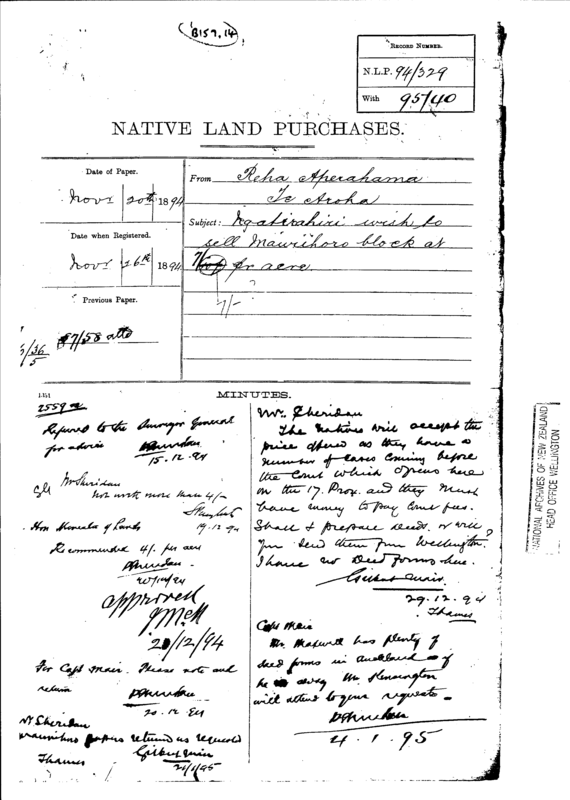 B159.14
RECORD NUMBER.
N.L.P. 94/329
With 95/40
NATIVE LAND PURCHASES.
Date of Paper.
Novr 20th 1894
Date when Registered.
Novr 26th 1894
Previous Paper.
87/58 attd
From Reha Aperahama
Te Aroha
Subject: Ngatirahiri wish to
sell Mawhihoro block at
7/ pr acre.
7/-
MINUTES.
2559
Referred to the Surveyor General
for advice
PSheridan
15.12.94
Mr Sheridan
Not worth more than 4/-
19.12.94
Hon Minister of Lands
Recommended 4/. per acre
PSheridan
20/12/94
Approved
JMcK
20/12/94
For Capt Mair. Please note and
return
PSheridan
20.12.94
Mr Sheridan
papers returned as requested
Gilbert Mair
Thames
Mr. Sheridan
The Natives will accept the
price offered as they have a
number of cases coming before
the Court which opens here
on the 17. Prox. and they must
have money to pay Court fees.
Shall I prepare Deeds, or will
you send them from Wellington?
I have no Deed forms here.
Gilbert Mair
29.12.94
Thames
Capt Mair
Mr. Maxwell has plenty of
deed forms in Auckland - if
he is away Mr Kensington
will attend to your requests -
PSheridan
4.1.95
NATIONAL ARCHIVES OF NEW ZEALAND
HEAD OFFICE WELLINGTON